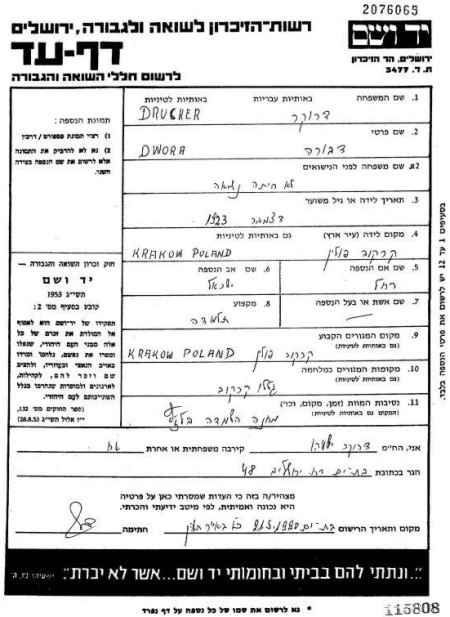 2076065
רשות-הזיכרון לשואה ולגבורה, ירושלים
יד ושם
דף-עד
ירושלים, הר הזיכרון
ת. ד. 3477
לרשום חללי השואה והגבורה
תמונת הנספה:
1) רצוי תמונת פספורט / דרכון
2) נא לא להדביק את התמונה אלא לרשום את שם הנספה בצידה השני.
חוק זכרון השואה והגבורה —
יד ושם
תשי״ג 1953
קובע בסעיף מס׳ 2:
תפקידו של יד-ושם הוא לאסוף
אל המולדת את זכרם של כל
אלה מבני העם היהודי, שנפלו
ומסרו את נפשם, נלחמו ומרדו
באויב הנאצי ובעוזריו, ולהציב
שם וזכר להם, לקהילות,
לארגונים ולמוסדות שנחרבו בגלל
השתייכותם לעם היהודי.
(ספר החוקים מס׳ 132,
י״ז אלול תשי״ג (28.8.53
1. שם המשפחה באותיות עבריות באותיות לטיניות
דרוקר DRUCKER
2. שם פרטי
דבורה DWORA
2א. שם משפחה לפני הנישואים
לא היתה נשואה
3. תאריך לידה או גיל משוער
דצמבר 1923
4. מקום לידה (עיר ארץ) גם באותיות לטיניות
קרקוב פולין KRAKOW POLAND
5. שם אם הנספה
רחל
6. שם אב הנספה
ישראל
7. שם אשת או בעל הנספה
8. מקצוע
תלמדה
9. מקום המגורים הקבוע
(גם באותיות לטיניות)
קרקוב פולין KRAKOW POLAND
10. מקומות המגורים במלחמה
(גם באותיות לטיניות)
גטו קרקוב
11. נסיבות המוות (זמן, מקום, וכו׳)
(המקום גם באותיות לטיניות)
מחנה השמדה
אני, הח״מ דרוקר קירבה משפחתית או אחרת אח
הגר בכתובת בת-ים רח׳ 48
מצהיר/ה בזה כי העדות שמסרתי כאן על פרטיה
היא נכונה ואמיתית, לפי מיטב ידיעתי והכרתי.
מקום ותאריך הרישום בת-ים חתימה
במקומות 1 עד 12 יש לרשום את פרטי הנספה בלבד.
״...ונתתי להם בביתי ובחומותי יד ושם...אשר לא יכרת״
* נא לרשום את שמו של כל נספה על דף נפרד
115808